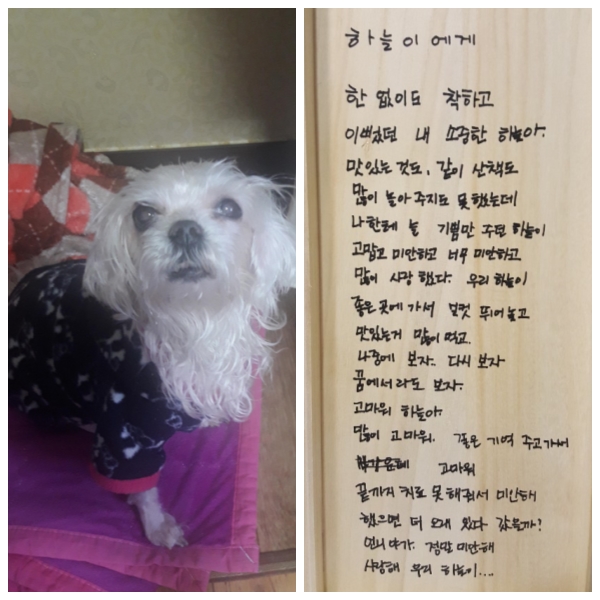 하늘이에게
한 없이도 착하고
이뻤던 내 소중한 하늘아.
맛있는것도, 같이 산책도
많이 놀아주지도 못했는데
나한테 늘 기쁨만 주던 하늘이
고맙고 미안하고 너무 미안하고
많이 사랑했다. 우리 하늘이
좋은곳에가서 맘껏 뛰어놀고
맛있는거 많이 먹고.
나중에 보자. 다시 보자
꿈에서라도 보자.
고마워 하늘아.
많이 고마워. 좋은 기억 주고가서
고마워
끝까지 치료 못해줘서 미안해
했으면 더 오래 있다 갔을까?
언니야가. 정말 미안해
사랑해 우리 하늘이....